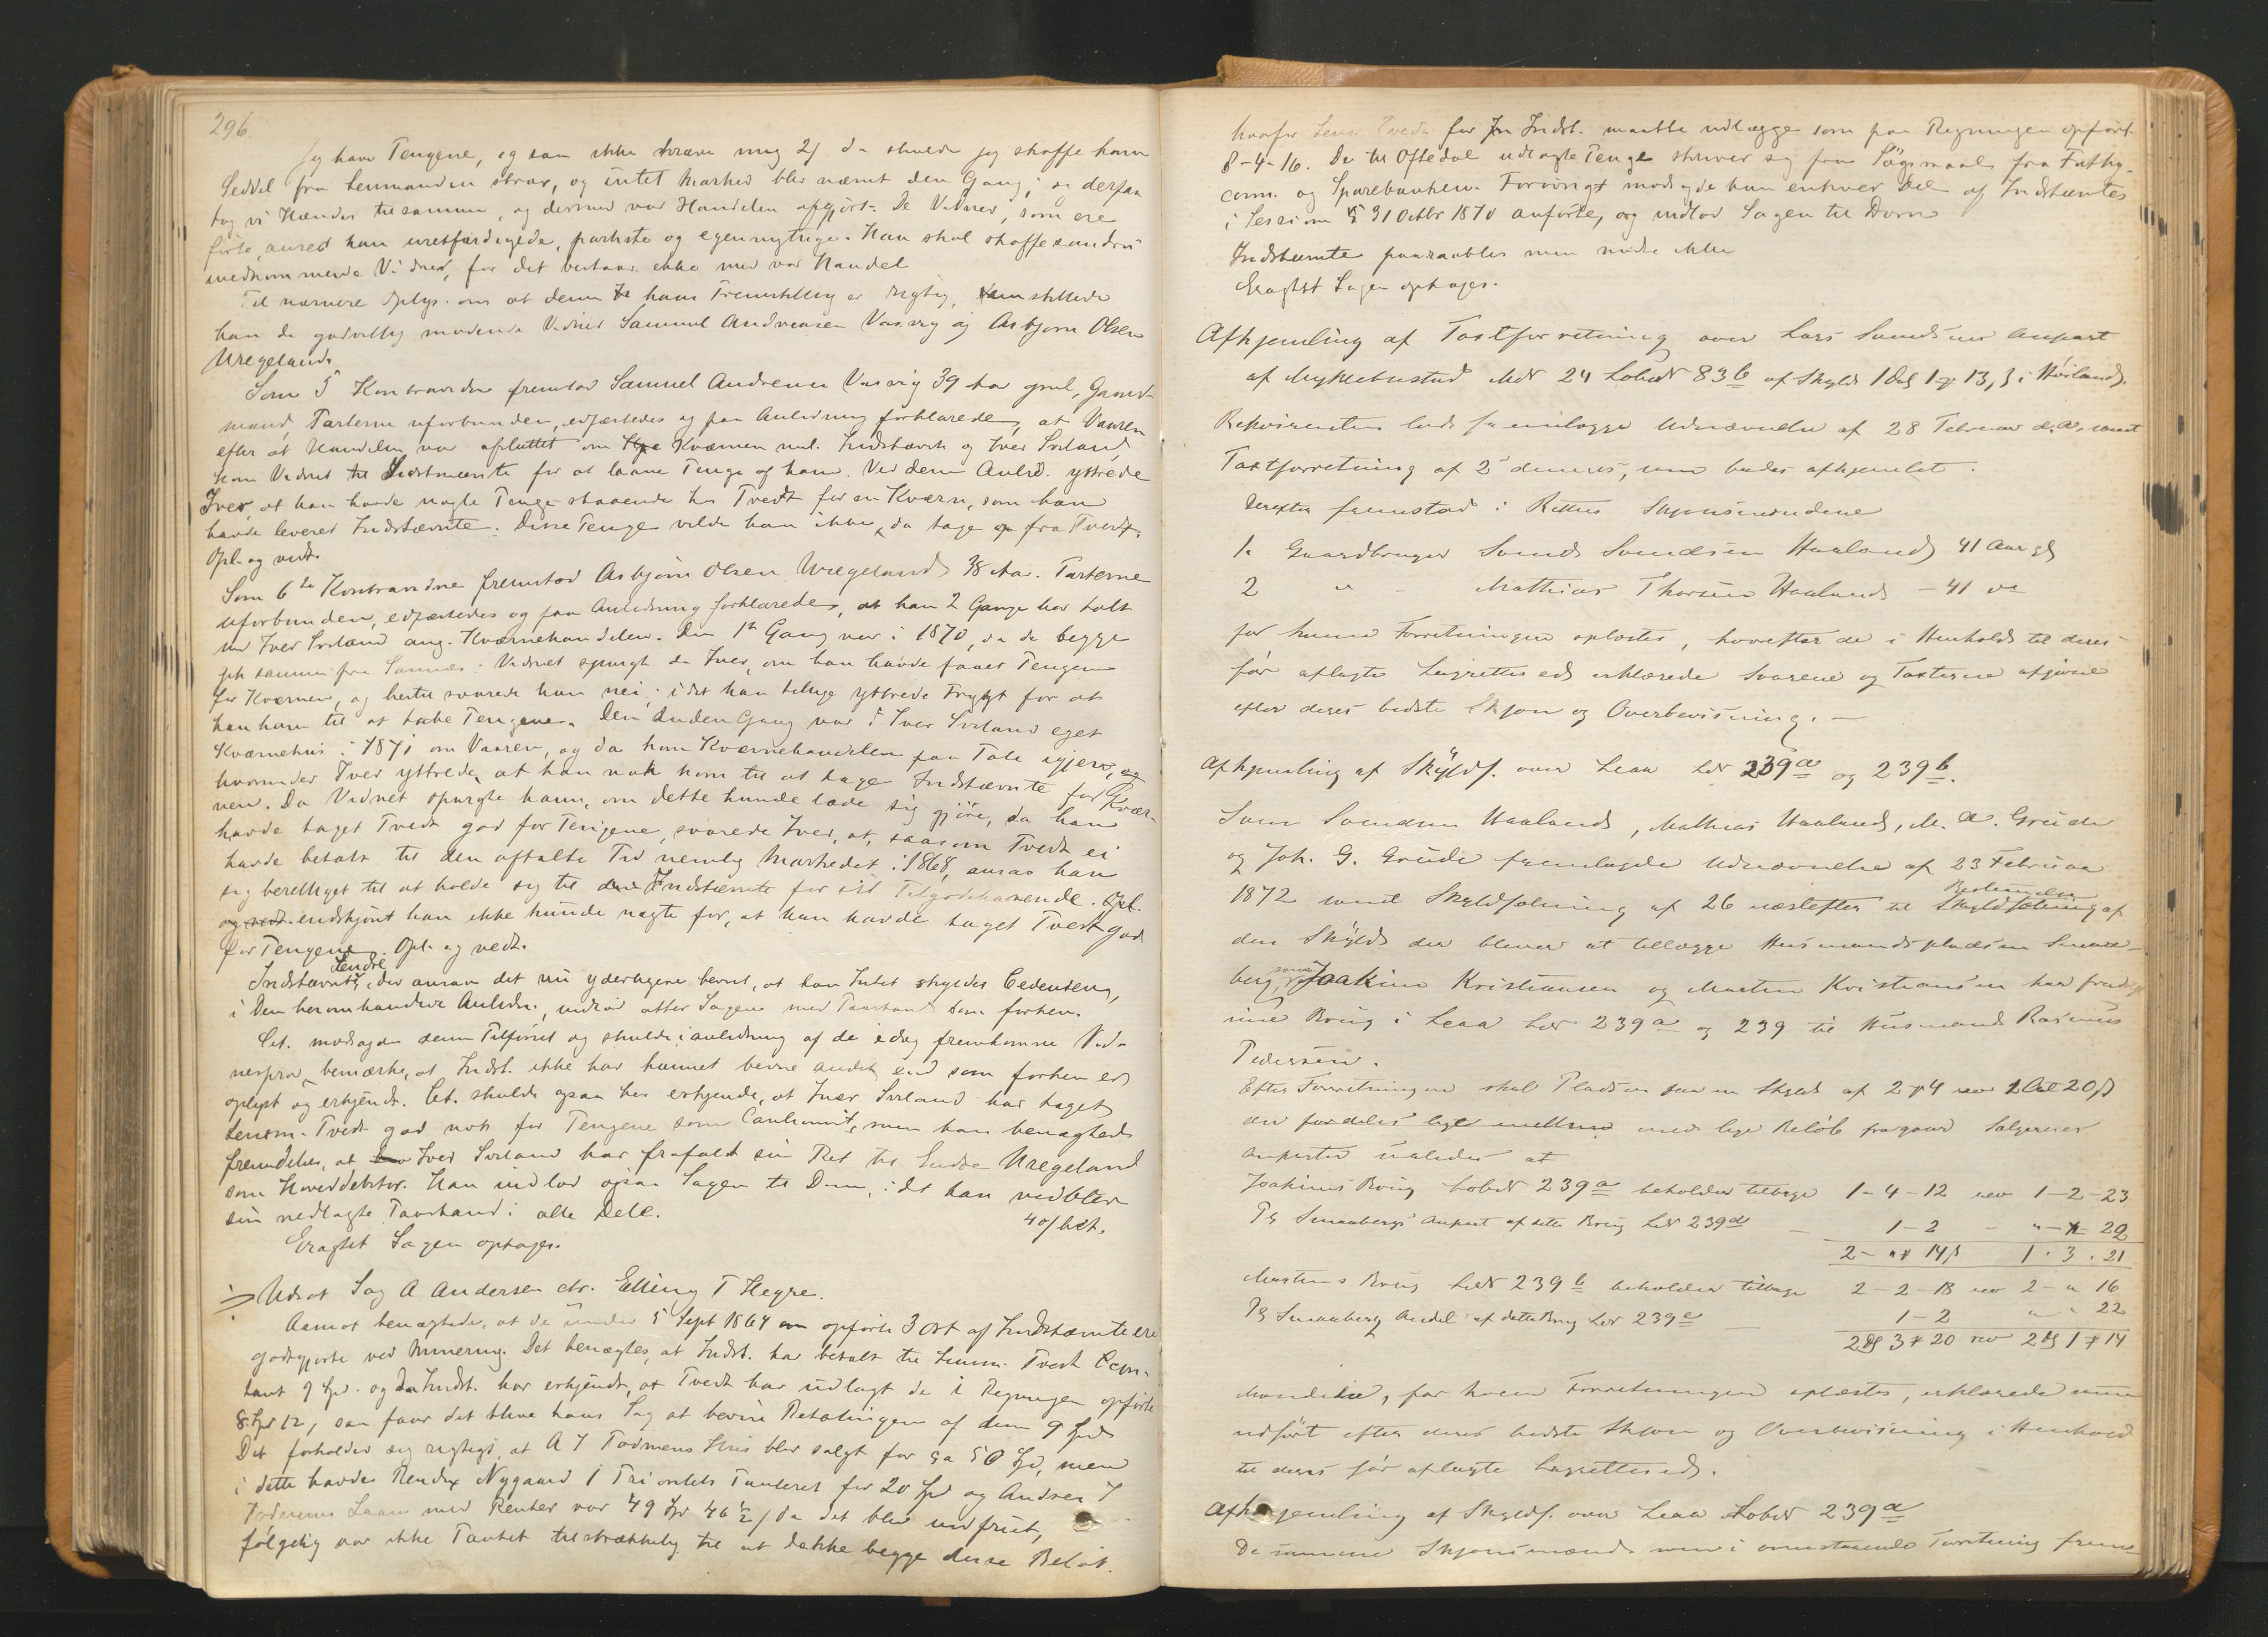 296.
Jeg have Tengene, og saa ikke kræve mig 2/ da skulde jeg skaffe ham
Seddel fra Lensmanden strax, og intet Marked blev nævnt den Gang; og derpaa
tog vi Hænder tilsammen, og dermed var Handelen afgjort. De Vidner, som ere
førte, anser han uretfærdigede, partiske og egennyttige. Han skal skaffe sandru
vedkommende Vidner, for det bestaar ikke med vor Handel
Til nærmere Oplys. om at denne hans Fremstilling er rigtig, fremstillede
han de godvillig mødende Vidner Samuel Andreasen Vasvig og Asbjørn Olsen
Uregeland.
Som 5te Kontravidne fremstod Samuel Andreasen Vasvig 39 Aar gml, Gaard-
mand, Parterne uforbunden, edfæstedes og paa Anledning forklarede, at Vaaren
efter at Handelen var afsluttet om Kværnen ml. Indstævnte og Iver Sviland,
kom Vidnet til Sidstnævnte for at laane Penge af ham. Ved denne Anled. yttrede
Iver, at han havde nogle Penge staaende hos Tvedt for en Kværn, som han
havde leveret Indstævnte. Disse Penge vilde han ikke da tage fra Tvedt.
Opl. og vedt.
Som 6te Kontravidne fremstod Asbjørn Olsen Uregeland 38 Aar. Parterne
uforbunden, edfæstedes og paa Anledning forklarede, at han 2 Gange har talt
med Iver Sviland ang. Kværnehandelen. Den 1te Gang var i 1870, da de begge
gik sammen fra Sannæs. Vidnet spurgte da Iver, om han havde faaet Pengene
for Kværnen, og hertil svarede han nei, idet han tillige yttrede Frygt for at
han kom til at tabe Pengene. Den anden Gang var i Iver Sviland eget
Kværnehus i 1871 om Vaaren, og da kom Kværnehandelen paa Tale igjen,
hvorunder Iver yttrede, at han nok kom til at tage Indstævnte for Kvær-
nen. Da Vidnet spurgte ham, om dette kunde lade sig gjøre, da han
havde taget Tvedt god for Pengene, svarede Iver, at, saasom Tvedt ei
havde betalt til den aftalte Tid nemlig Markedet i 1868, ansaa han
sig berettiget til at holde sig til Indstævnte for sit Tilgodehavende. Opl.
og vedt. endskjønt han ikke kunde nægte for, at han havde taget Tvedt god
for Pengene. Opl. og vedt.
Indstævnte Endre, der ansaa det nu yderligere bevist, at han Intet skyldes Cedenten,
i Den heromhandlede Anledn., indlod atter Sagen med Paastand som forhen.
Cit. modsagde denne Tilførsel og skulde i anledning af de idag fremkomne Vid-
nesprov bemærke, at Indst. ikke har kunnet bevise andet end som forhen er
oplyst og erkjendt. Cit. skulde ogsaa her erkjende, at Iver Sviland har taget
Lensm. Tvedt god nok for Pengene som Cautionist, men han benægtede
fremdeles, at Iver Sviland har frafaldt sin Ret til Endre Uregeland
som Hoveddebitor. Han indlod ogsaa Sagen til Dom, idet han vedblev
sin nedlagte Paastand i alle Dele.
Eragtet Sagen optages.
40/bet.
Udsat Sag A Andersen ctr. Elling T Hegre.
Aamot benægtede, at de under 5 Sept 1864 opførte 3 Ort af Indstævnte ere
godtgjorte ved Minering. Det benægtes, at Indst. har betalt til Lensm. Tvedt Con-
tant 9 Spd. og da Indst. har erkjendt, at Tvedt har udlagt de i Regningen opførte
8 Spd 12, saa faar det blive hans Sag at bevise Betalingen af dem 9 Spd
Det forholder sig rigtigt, at A T Todnems Hus blev solgt for ca 50 Spd, men
i dette havde Rendx Nygaard 1 Prioritets Panteret for 20 Spd og Andreas T
Todnems Laan med Renter var 49 Spd 46 1/2 / da det blev indfriet,
følgelig var ikke Pantet tilstrækkelig til at dække begge disse Beløb.
hvorfor Lensm Tvedt for Indst. maatte udlægge som paa Regningen opført
8-4-16. De til Oftedal udlagte Penge skriver sig fra Søgsmaal fra Fattig-
comm. og Sparebanken. Forøvrigt modsagde han enhver Del af Indstævntes
i Session 31 Octbr 1870 anførte, og indlod Sagen til Dom
Indstævnte paaraabtes men mødte ikke
Eragtet Sagen optages.
Afhjemling af Taxtforretning over Lars Svendsens Anpart
af Myklebustad MN 24 Løbn 83b af Skyld 1 Dlr 1 13, i Høiland.
Rekvirenten lod fremlægge Udnævnelse af 28 Februar d.A. samt
Taxtforretning af 2 dennes, som bedes afhjemlet.
Derefter fremstod i Retten Skjønsmændene
1. Gaardbruger Svend Svendsen Haaland 41 Aar gl
2 " - Mathias Thorsen Haaland - 41 "
for hvem Forretningen oplæstes, hvorefter de i Henhold til deres
før aflagte Lagrettes ed erklærede Svarene og Taxterne afgivne
efter deres bedste Skjøn og Overbevisning. -
Afhjemling af Skyldf. over Leaa Lnr 239a og 239b.
Som Svendsen Haaland, Mathias Haaland, M. A. Grude
og Joh. G. Grude fremlagde Udnævnelse af 23 Februar
1872 samt Skyldsætning af 26 næstefter til Bestemmelse af
den Skyld der bliver at tillægge Husmandspladsen Smaa-
berg som Joakim Kristiansen og Martin Kristiansen har fradelt
sine Brug i Leaa Lnr 239a og 239 til Husmand Rasmus
Pedersen.
Efter Forretningen skal Pladsen faa en Skyld af 2 4 rev 1 Ort 20 ß
der fordeles lige med lige Beløb fragaar Sælgernes
anparter saaledes at
Joakims Brug Løbnr 239a beholder tilbage 1-4-12 rev 1-2-23
Pg Smaabergs Anpart af dette Brug Lnr 239d - 1-2 - " 22
2 - " 14 ß 1. 3. 21
Martins Brug Lnr 239b beholder tilbage 2-2-18 rev 2-" 16
Pg Smaaberg Andel af dette Brug Lnr 239e - 1-2 " " 22
2 Dlr 3 20 rev 2 Dlr 1 14
Mændene, for hvem Forretningen oplæstes, erklærede samme
udført efter deres bedste Skjøn og Overbevisning i Henhold
til deres før aflagte Lagrettesed.
Afhjemling af Skyldf. over Leaa Løbnr 239a
De samme Skjønsmænd som i ovenstaaende Forretning frem-